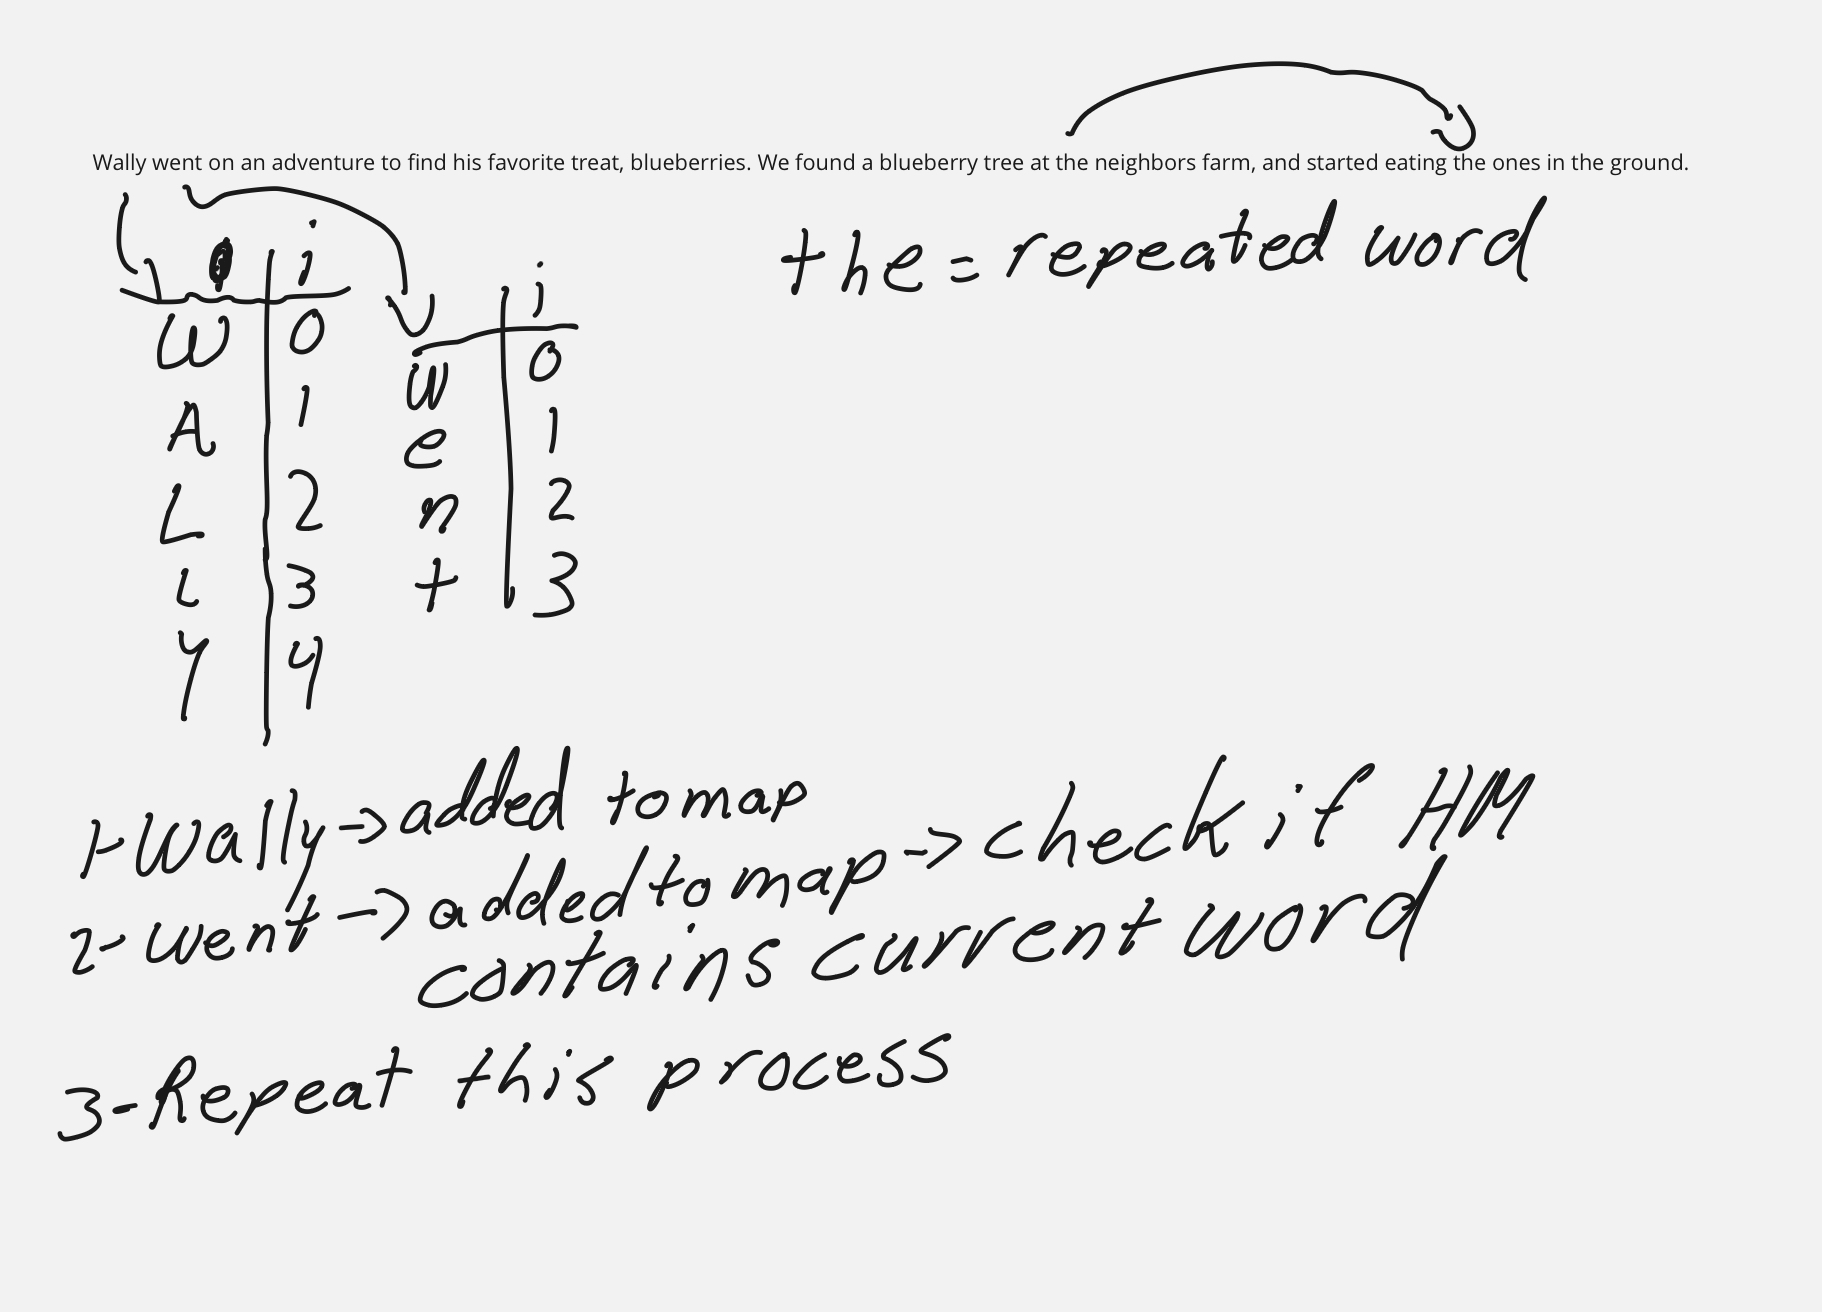 Wally went on an adventure to find his favorite treat, blueberries. We found a blueberry tree at the neighbors farm, and started eating the ones in the ground.
the = repeated word
i
W 0
A 1
L 2
L 3
Y 4
i
w 0
e 1
n 2
t 3
1-Wally -> added to map
2-went -> added to map -> check if HM
contains current word
3-Repeat this process